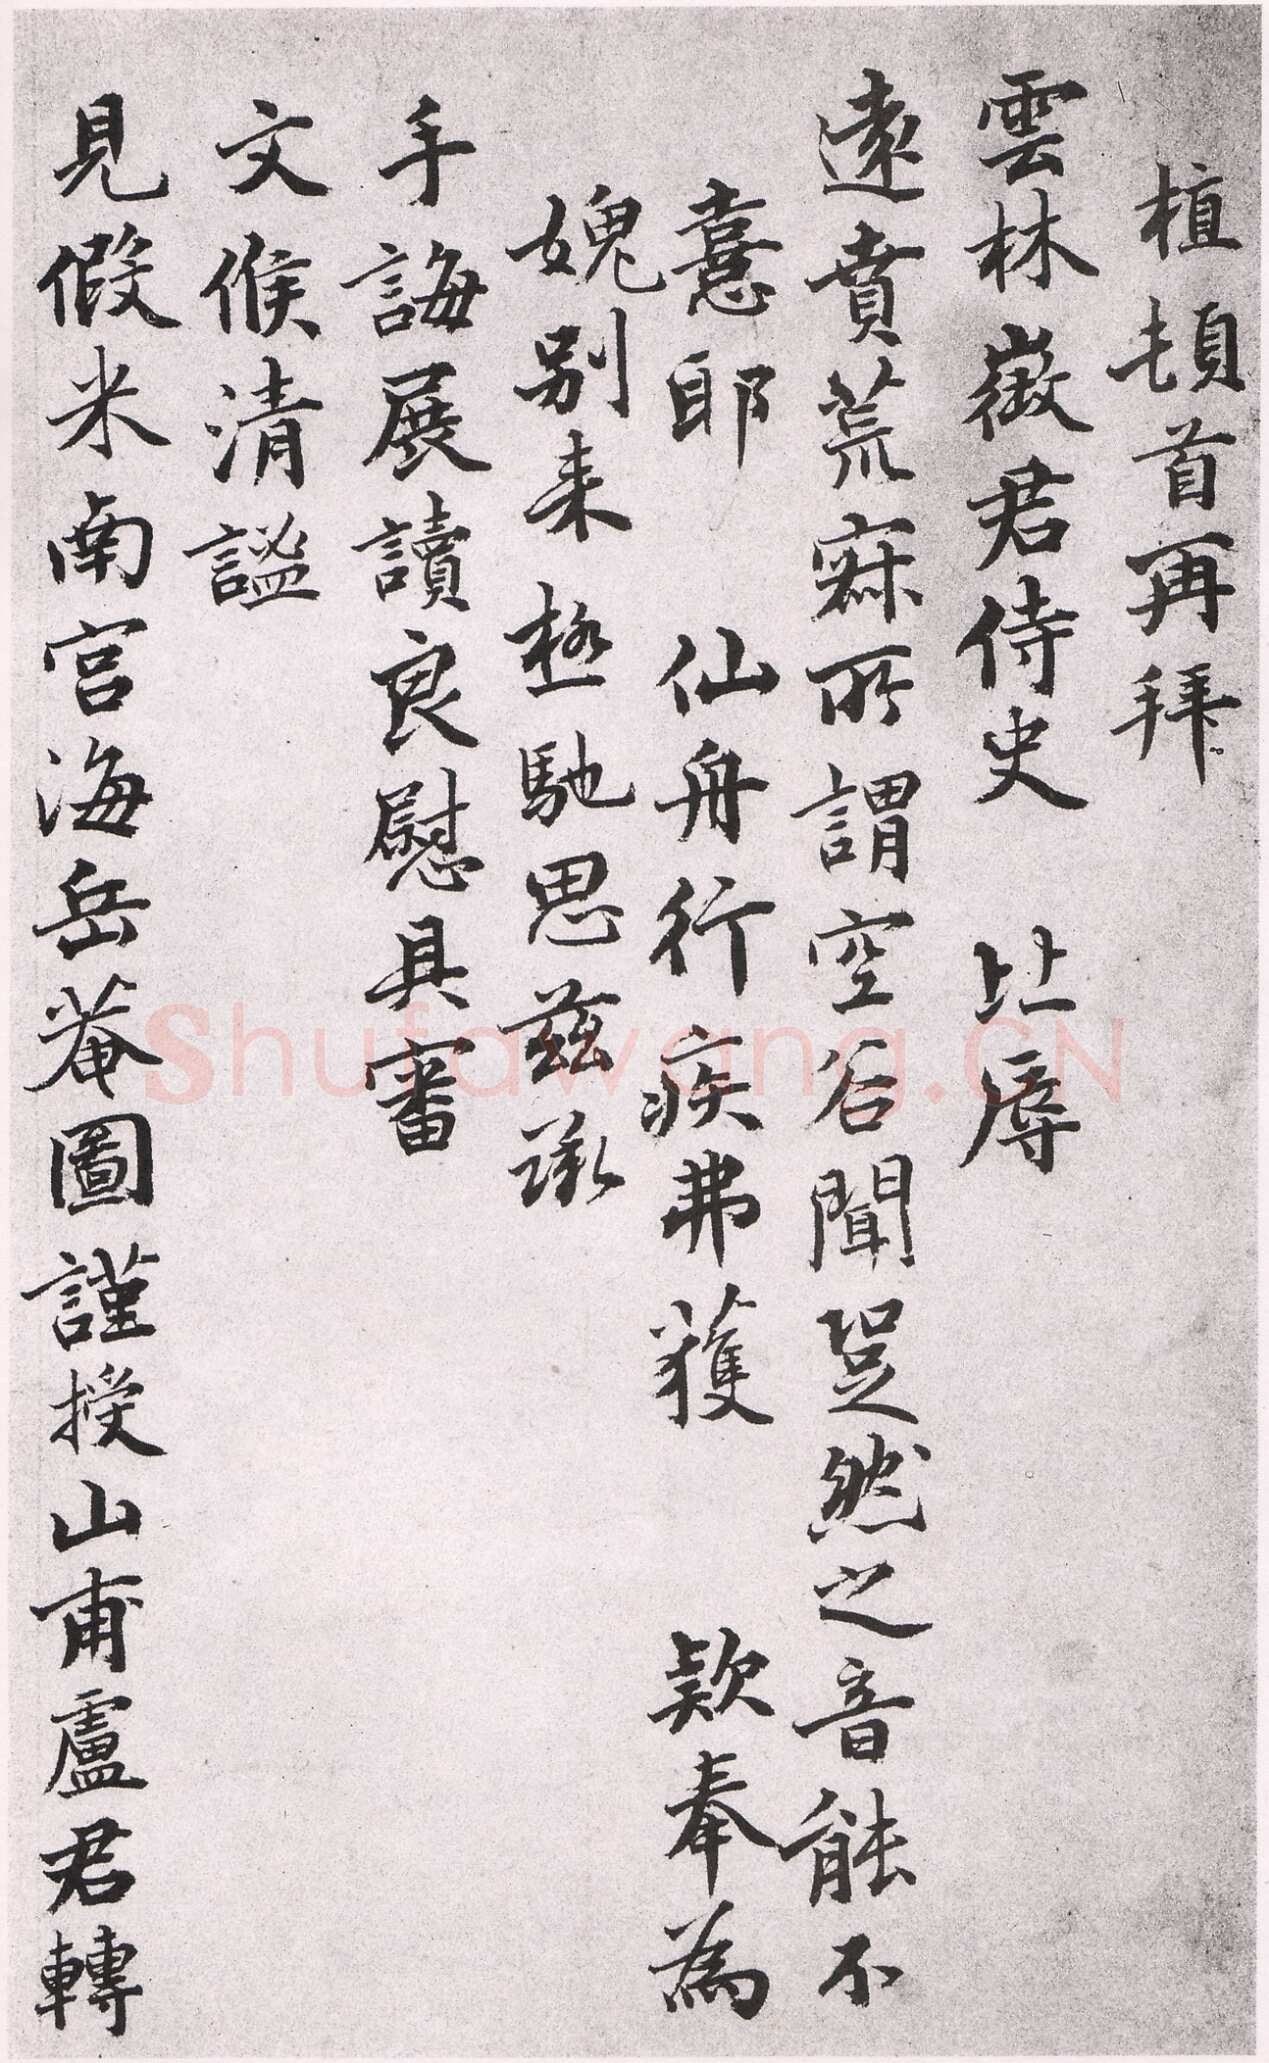 植頓首再拜
雲林徵君侍史　比辱
遠賁荒寐所謂空谷聞足然之音能不
憙耶　仙舟行疾弗獲　欵奉為
媿別来極馳思茲承
手誨展讀良慰具審
文候清謐
見假米南宮海岳菴圖謹授山甫盧君轉
Shufawang.CN